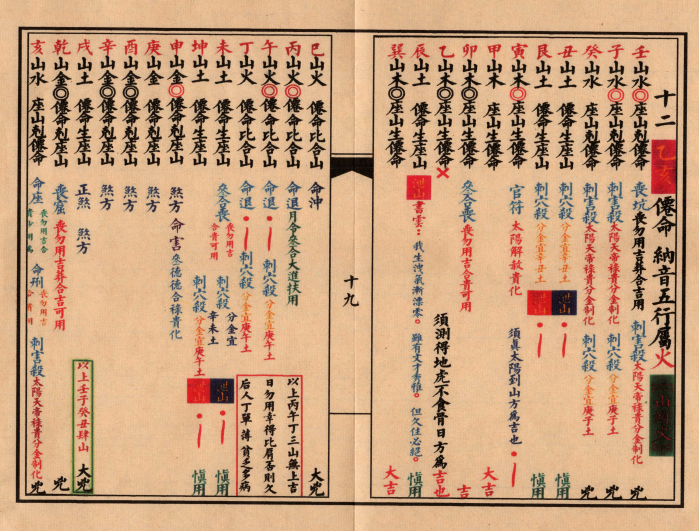 十二 乙亥 僊命 納音五行屬火
壬山水◎座山剋僊命 喪坑 喪勿用吉葬合吉用 刺害殺 太陽天帝祿貴分金制化 兇
子山水◎座山剋僊命 刺害殺 太陽天帝祿貴分金制化 刺穴殺 分金宜庚子土 兇
癸山水 座山剋僊命 刺害殺 太陽天帝祿貴分金制化 刺穴殺 分金宜庚子土 兇
丑山土 僊命生座山 刺穴殺 分金宜辛丑土 慎用
艮山土 僊命生座山 刺穴殺 分金宜辛丑土 慎用
寅山木◎座山生僊命 官符 太陽解赦貴化 須真太陽到山方為吉也
甲山木 座山生僊命 大吉
卯山木◎座山生僊命 喪勿用吉葬合貴可用 吉
乙山木◎座山生僊命× 須測得地虎不食骨日方為吉也
辰山土 僊命生座山 書雲：我生洩氣漸漂零。雖有文才秀雅。但久住必絕。慎用
巽山木 座山生僊命 大吉
十九
巳山火 僊命比合山 命沖 大兇
丙山火◎僊命比合山 命退 月令叅合大進扶用
午山火◎僊命比合山 命退 刺穴殺 分金宜庚午土
丁山火 僊命比合山 命退 刺穴殺 分金宜庚午土
以上丙午丁三山無上吉
日勿用幸得比肩否則久
后人丁單薄貧乏多病
未山土 僊命生座山 喪勿用吉合貴可用 刺穴殺 分金宜辛未土 慎用
坤山土 僊命生座山 慎用
申山金◎僊命剋座山 煞方 命害 叅德德合祿貴化
庚山金 僊命剋座山 煞方
酉山金◎僊命剋座山 煞方
辛山金◎僊命剋座山 煞方
戌山土 僊命生座山 正煞 煞方
以上壬子癸丑肆山 大兇
乾山金◎僊命剋座山 喪窟 喪勿用吉葬合吉可用 刺害殺 太陽天帝祿貴分金制化 兇
亥山水 座山剋僊命 命座 命刑 兇